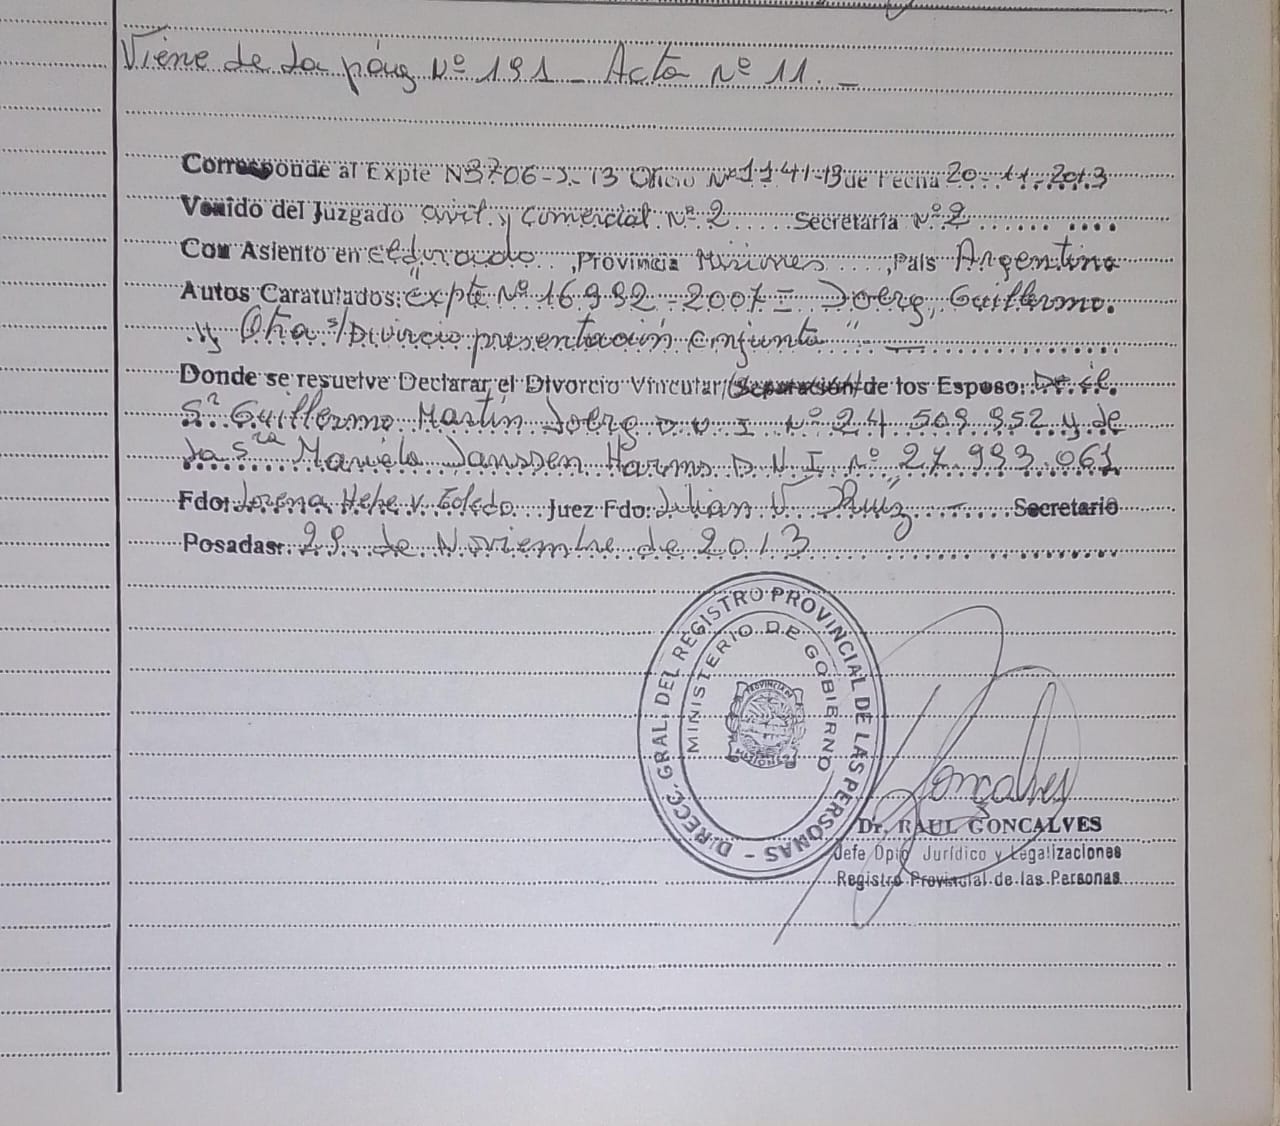 Viene de la pág Nº 191 - Acta nº 11. -
Corresponde al Expte N 3706-J-13 Oficio Nº 1141-13 de Fecha 20-11-2013
Venido del Juzgado Civil y Comercial Nº 2 ..... Secretaría Nº 2
Con Asiento en Eldorado ..., Provincia Misiones ...., País Argentina
Autos Caratulados: "Expte Nº 16.992-2007 - Doerg, Guillermo.
y Otra s/ Divorcio presentación conjunta" -
Donde se resuelve Declarar el Divorcio Vincular/(Separación) de los Esposo: De él
Sr Guillermo Martín Doerg D N I Nº 24 509.952 y de
la Sra Mariela Janssen Harms D.N.I. nº 27.993.061
Fdo: Lorena Hebe V. Toledo. Juez Fdo: Julian V. Ruiz ..... Secretario
Posadas: 29 de Noviembre de 2013
DIRECC. GRAL. DEL REGISTRO PROVINCIAL DE LAS PERSONAS -
MINISTERIO DE GOBIERNO
PROVINCIA DE
MISIONES
Gonçalves
Dr. RAUL GONCALVES
Jefe Dpto Jurídico y Legalizaciones
Registro Provincial de las Personas